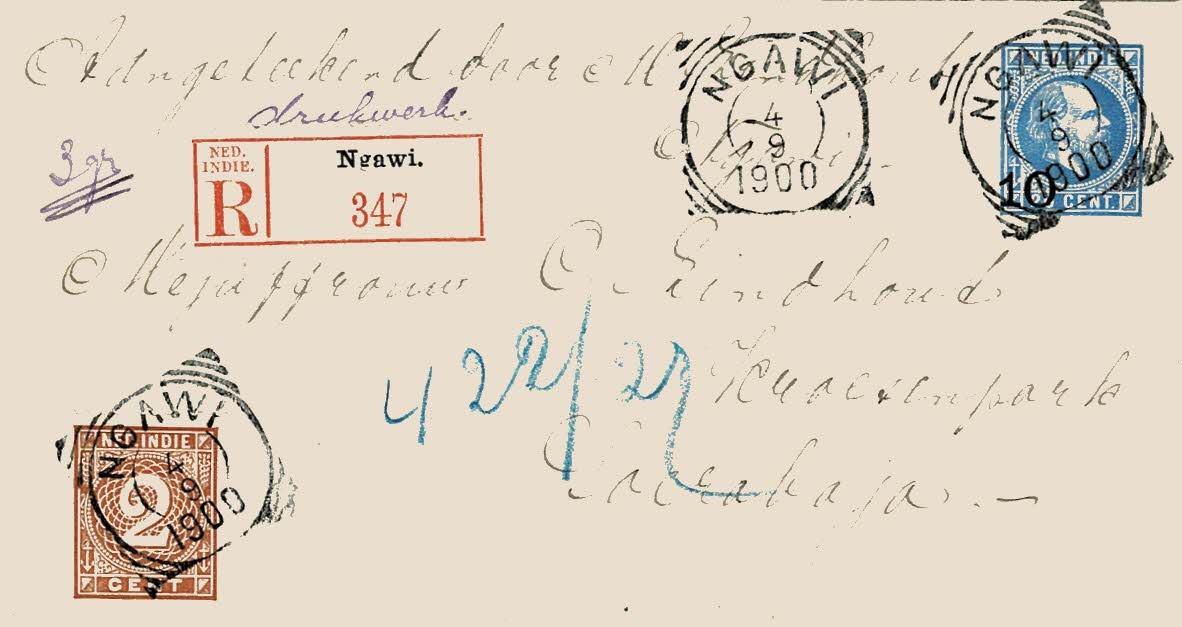 Aangeteekend door
drukwerk.
3 gr
NED.
INDIE.
R
Ngawi.
347
NGAWI
4
9
1900
NGAWI
4
9
1900
NED. INDIE
10
CENT.
Mejuffrouw C. Eindhoud
422/27
Kroesenpark
Soerabaja. —
NGAWI
4
9
1900
NED. INDIE
2
CENT